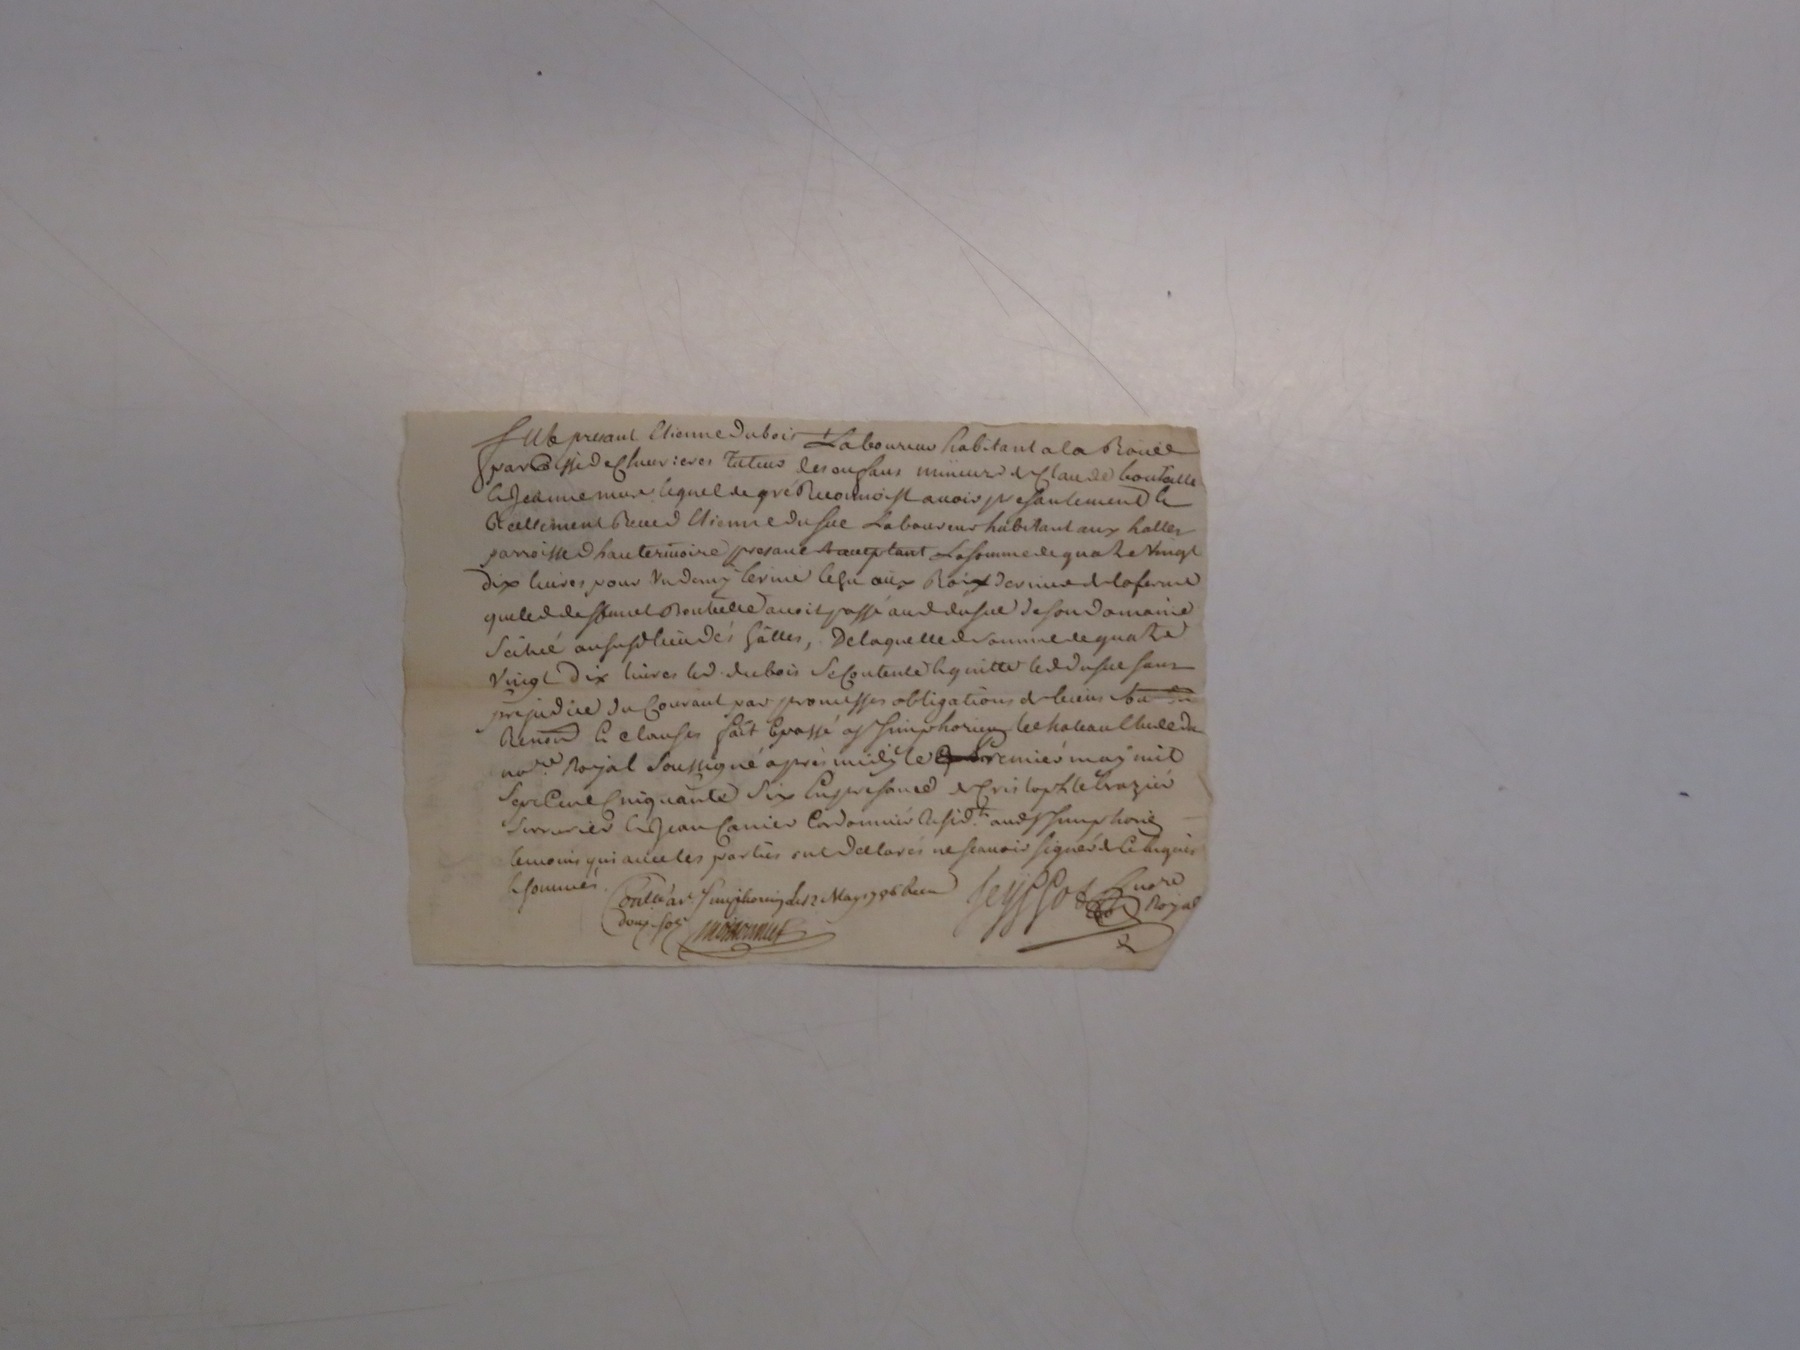 Fut present Etienne Dubois Laboureur habitant a la Rouée
parroisse de Chevrieres Tuteur des enfans mineurs de Claude
& Jeanne lequel de gré Reconnoist avoir presentement &
Reellement Receu d Etienne dusue Laboureur habitant aux halles
parroisse d hauterivoire present acceptant La somme de quatre vingt
Dix livres pour un demy terme echu aux Roix dernier de la ferme
que led deffunt avoit passé aud dusue de son domaine
Scitué au susd lieu des halles, De laquelle d somme de quatre
Vingt Dix livres led. dubois Se Contente & quitte led dusue sans
prejudice du Courant par promesses obligations de biens
Renon & clauses fait & passé a St Simphorien le chateau Etude du
no.re Royal Soussigné après midy le premier may mil
Sept Cent Cinquante Six En presence de Cristophle
Serrurier & Jean Cordonnier Resid.t aud St Simphorien
temoins qui avec les parties ont Declarés ne scavoir signer de Ce Enquis
& sommés.
Con.lé a St Simphorien le 12 May 1756 Receu
douze sols
no.re
Royal